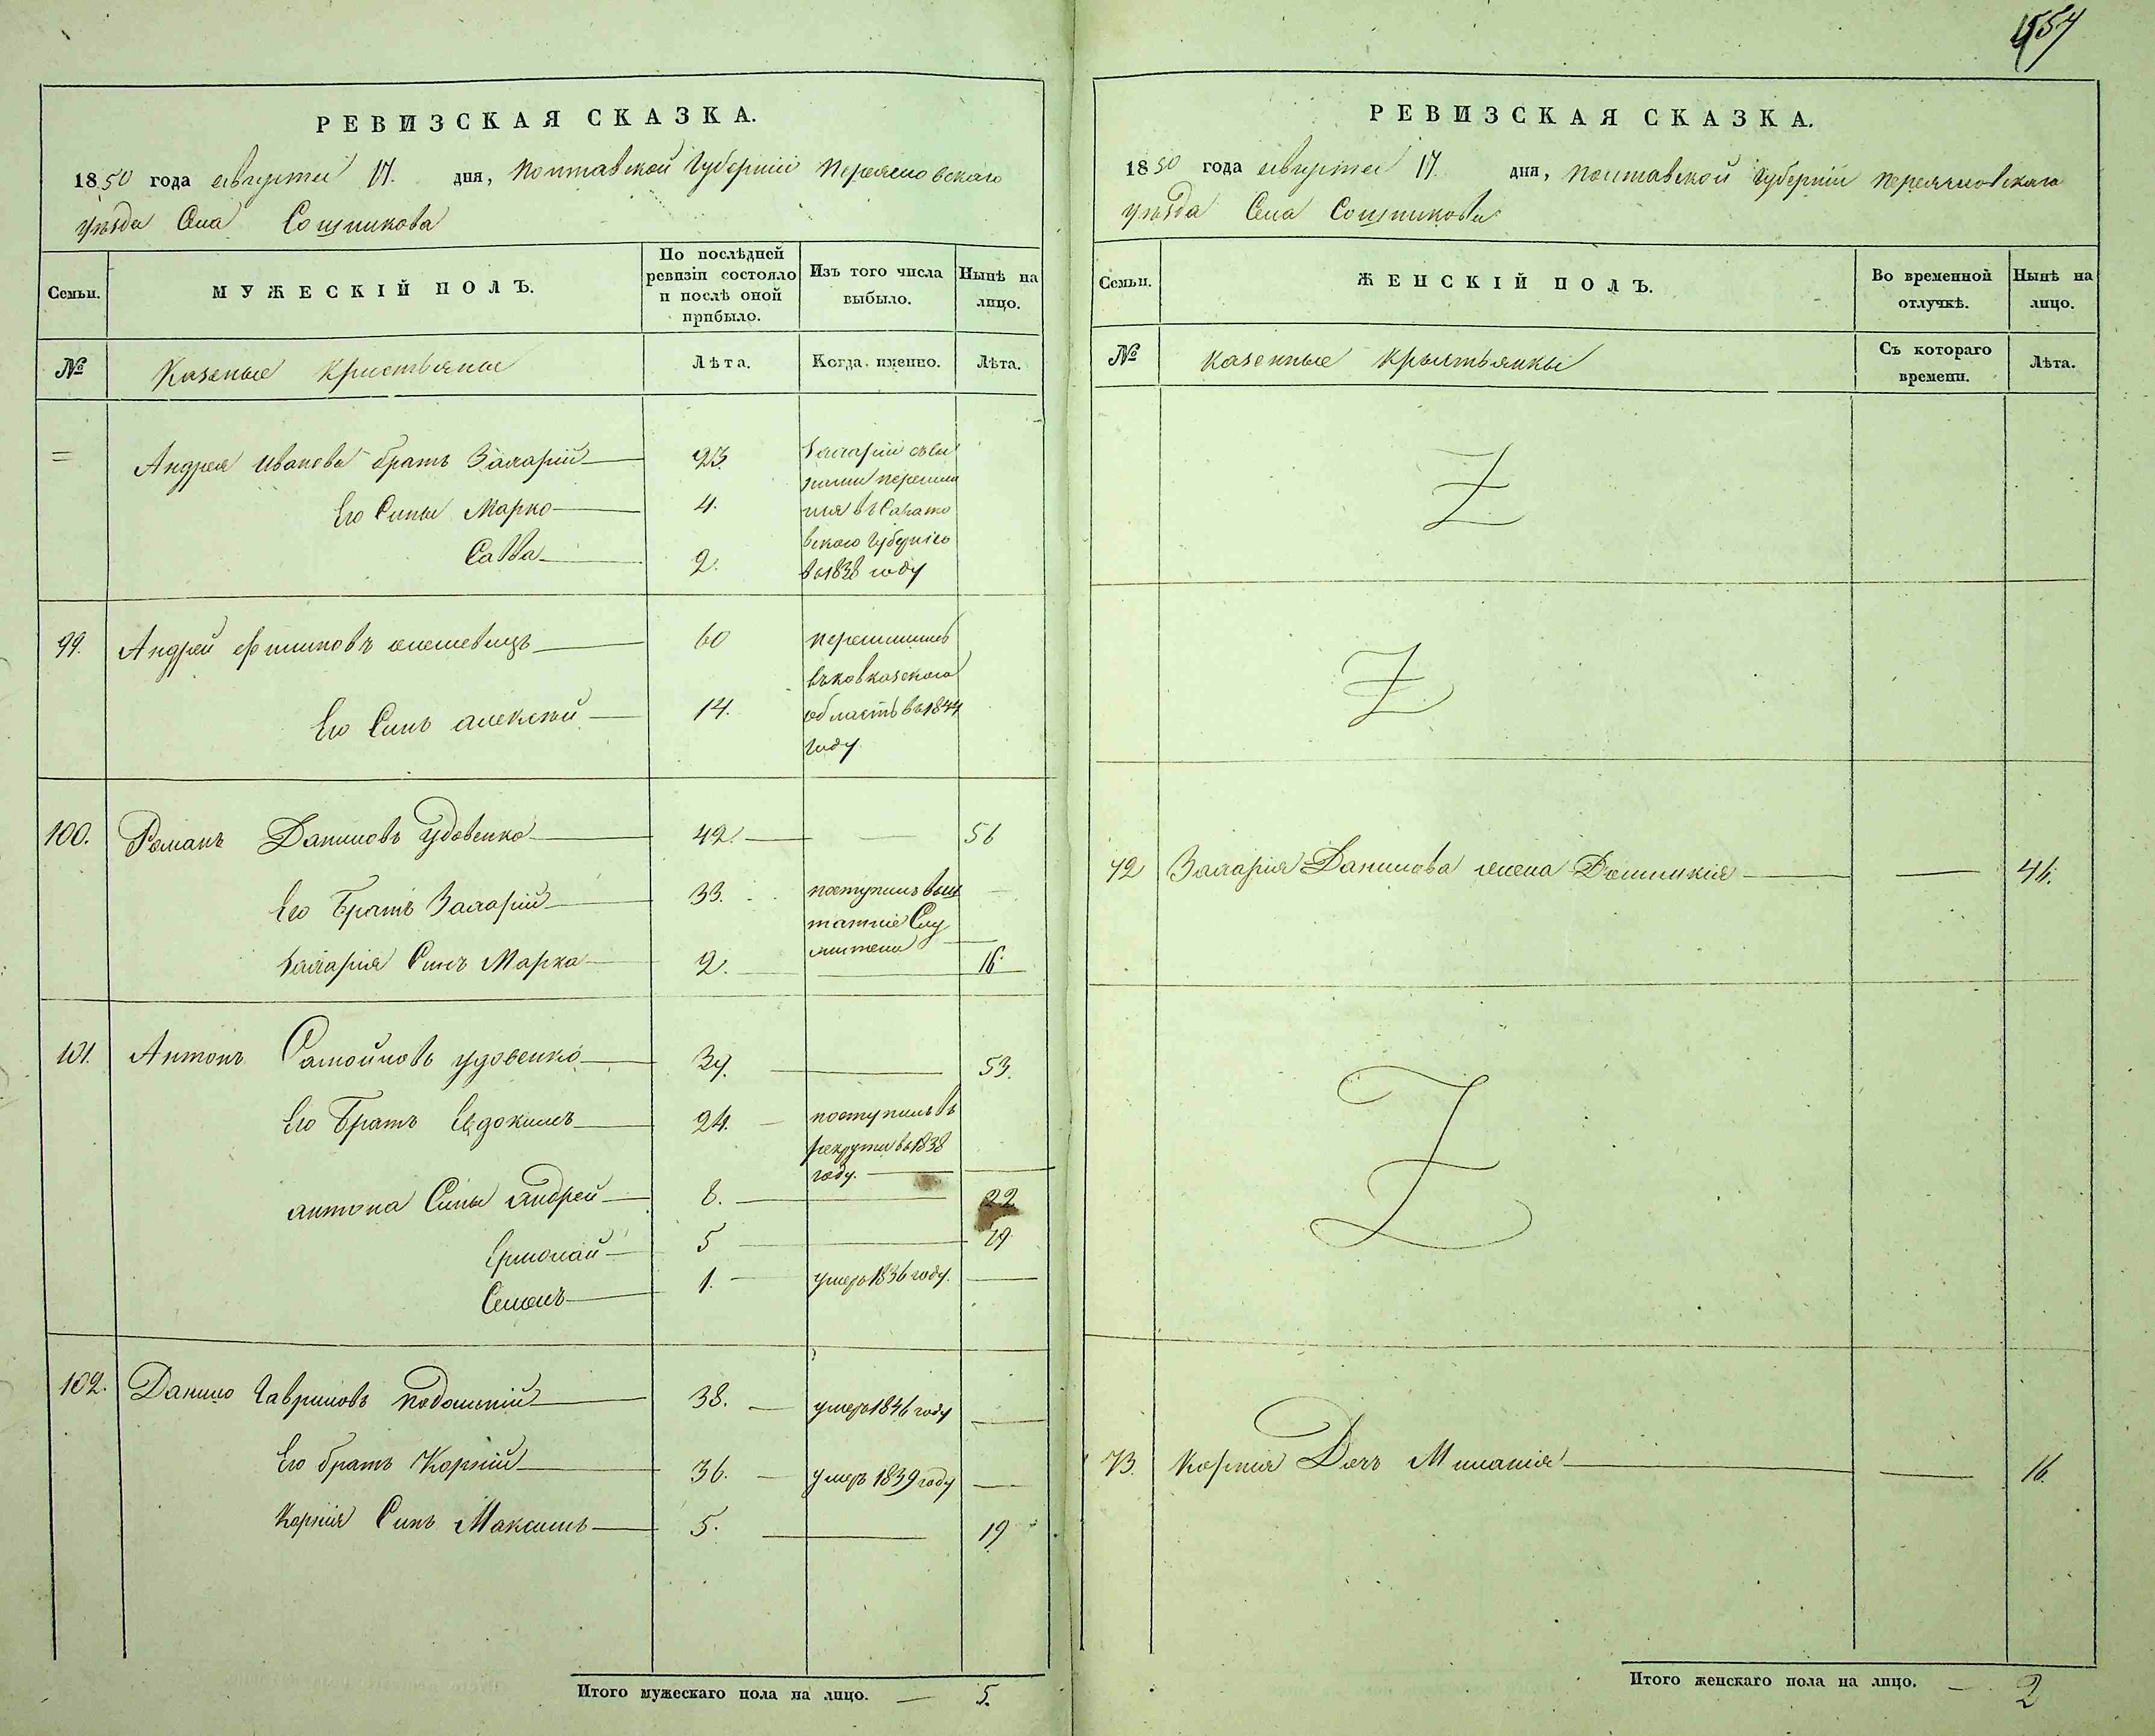 557
РЕВИЗСКАЯ СКАЗКА.
1850 года августа 17. дня, Полтавской Губернии Переясловскаго
уезда Села Сошникова
Семьи.
МУЖЕСКІЙ ПОЛЪ.
По послѣдней ревизіи состояло и послѣ оной прибыло.
Изъ того числа выбыло.
Нынѣ на лицо.
№
Казеные Кристьяные
Лѣта.
Когда именно.
Лѣта.
= Андрея Иванова братъ Захарій 23
Его Сыны Марко 4.
Савва 2.
Захарій съсы
нами перешли
въ Сарато
вскою Губернію
въ 1838 году
99. Андрей Филиповъ 60
Его Синъ Алексей 14.
перешлишъ
въ Ковказскою
область въ 1844
году
100. Романъ Даниловъ Удовенко 42. 56
Его Братъ Захарій 33.
поступилъ
Захарія Синъ Марка 2. 16.
101. Антонъ Самойловъ Удовенко 39. 53.
Его Братъ Евдокимъ 24.
поступилъ въ
рекруты въ 1838
году.
Антона Сины Андрей 8. 22
Ермолай 5 19
Семенъ 1. умеръ 1836 году.
102. Данило Гавриловъ 38. умеръ 1846 году
Его братъ Корній 36. умеръ 1839 году
Корнія Синъ Максимъ 5. 19
Итого мужескаго пола на лицо. — 5.
РЕВИЗСКАЯ СКАЗКА.
1850 года августа 17. дня, Полтавской Губерніи Переясловскаго
уезда Села Сошникова
Семьи.
ЖЕНСКІЙ ПОЛЪ.
Во временной отлучкѣ.
Нынѣ на лицо.
№
Казенные Крыстьянкы
Съ котораго времени.
Лѣта.
72 Захарія Данилова жена Домникія 46.
73. Корнія Дочъ Миланія 16.
Итого женскаго пола на лицо. — 2